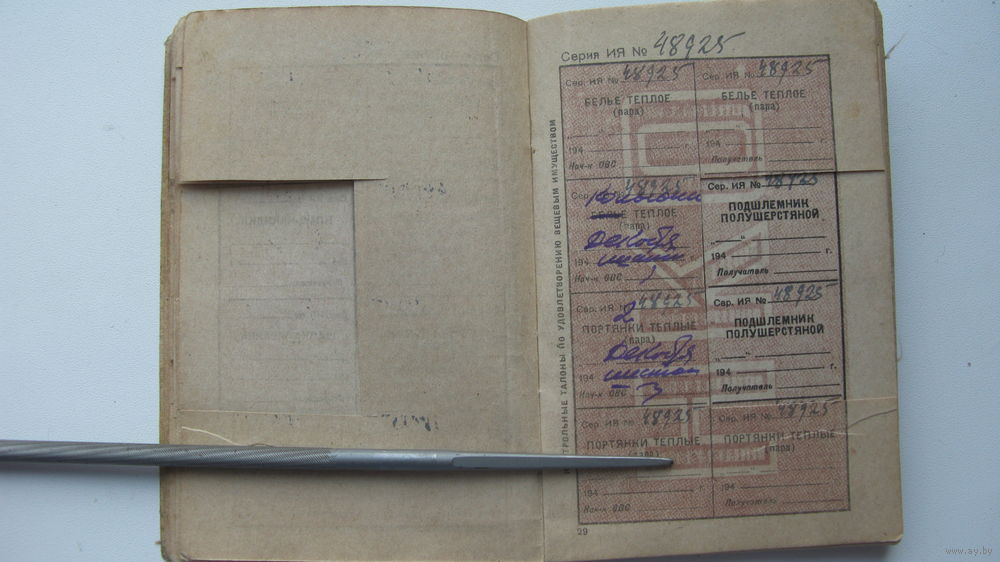 Серия ИЯ № 48925
КОНТРОЛЬНЫЕ ТАЛОНЫ ПО УДОВЛЕТВОРЕНИЮ ВЕЩЕВЫМ ИМУЩЕСТВОМ
Сер. ИЯ № 48925
БЕЛЬЕ ТЕПЛОЕ
(пара)
194 г.
Нач-к ОВС
Сер. ИЯ № 48925
БЕЛЬЕ ТЕПЛОЕ
(пара)
„ “
194 г.
Получатель
48925
БЕЛЬЕ ТЕПЛОЕ
(пара)
Декабря
194
Нач-к ОВС
Сер. ИЯ № 48925
ПОДШЛЕМНИК
ПОЛУШЕРСТЯНОЙ
„ “
194 г.
Получатель
Сер. ИЯ № 48925
2
ПОРТЯНКИ ТЕПЛЫЕ
(пара)
Декабря
194
Нач-к ОВС
Сер. ИЯ № 48925
ПОДШЛЕМНИК
ПОЛУШЕРСТЯНОЙ
„ “
194 г.
Получатель
Сер. ИЯ № 48925
ПОРТЯНКИ ТЕПЛЫЕ
(пара)
194 г.
Нач-к ОВС
Сер. ИЯ № 48925
ПОРТЯНКИ ТЕПЛЫЕ
(пара)
194 г.
Получатель
29
www.ay.by